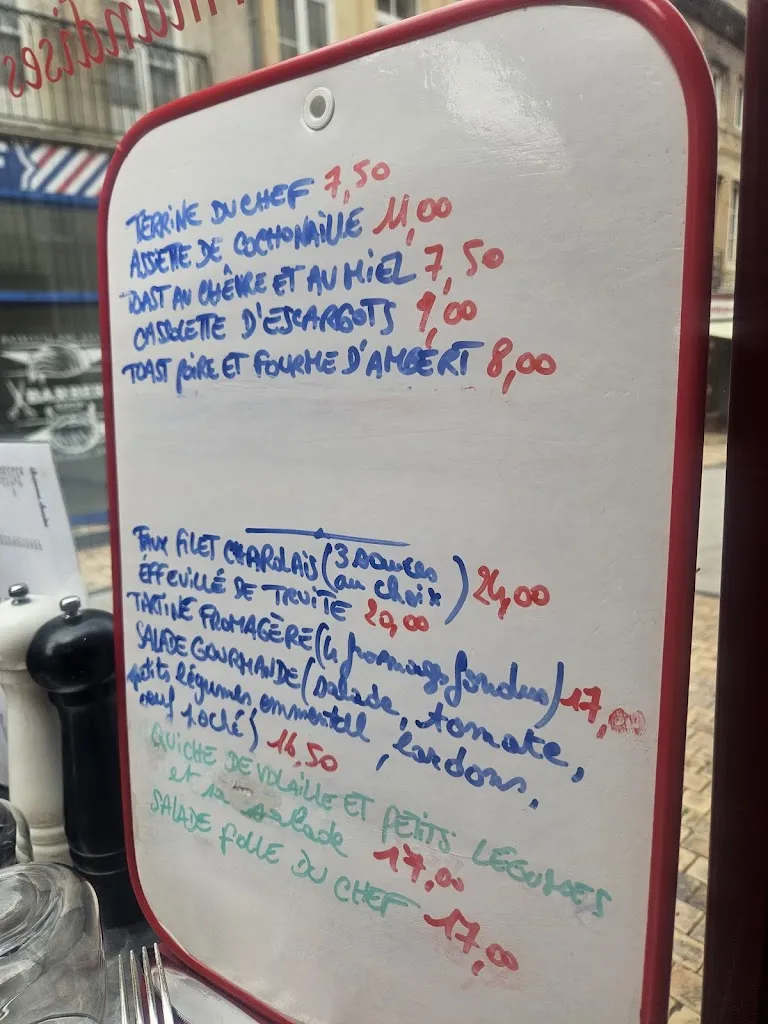 mandises
TERRINE DU CHEF 7,50
ASSIETTE DE COCHONAILLE 11,00
TOAST AU CHÈVRE ET AU MIEL 7,50
CASSOLETTE D'ESCARGOTS 9,00
TOAST POIRE ET FOURME D'AMBERT 8,00
FAUX FILET CHAROLAIS (3 sauces au choix) 24,00
ÉFFEUILLÉ DE TRUITE 20,00
TARTINE FROMAGÈRE (4 fromages fondus) 17,00
SALADE GOURMANDE (salade, tomate,
petits légumes, emmental, lardons,
oeuf poché) 16,50
QUICHE DE VOLAILLE ET PETITS LÉGUMES
et sa salade 17,00
SALADE FOLLE DU CHEF 17,00